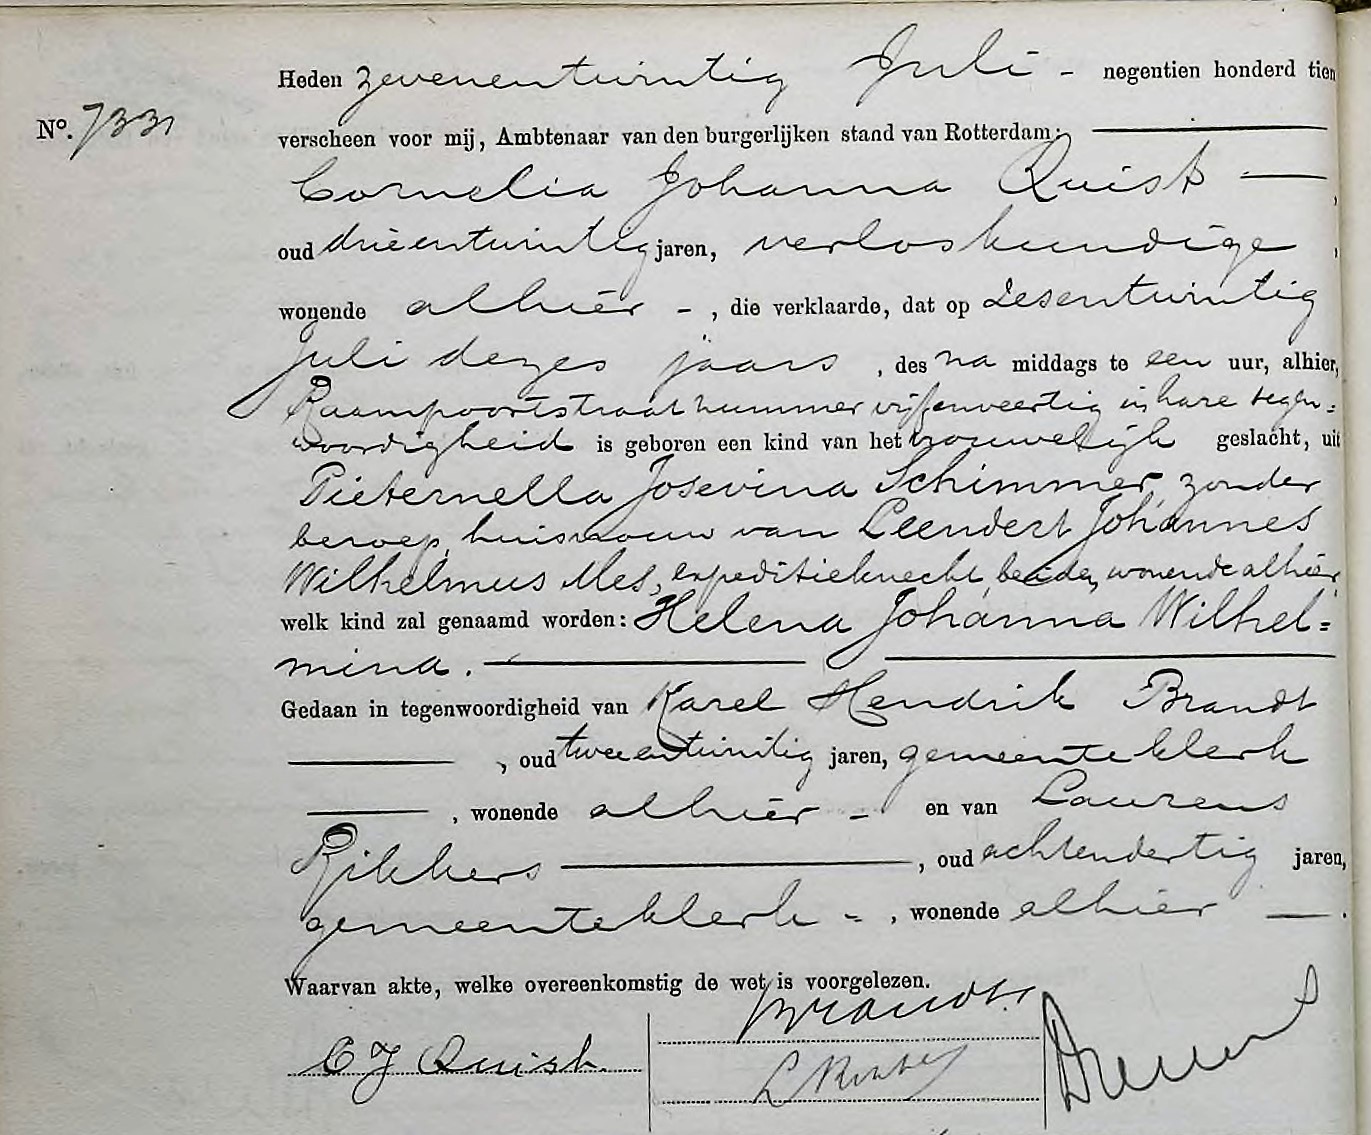 Heden zevenentwintig Juli - negentien honderd tien
No. 7331
verscheen voor mij, Ambtenaar van den burgerlijken stand van Rotterdam:
Cornelia Johanna Quist,
oud drieentwintig jaren, verloskundige,
wonende alhier -, die verklaarde, dat op zesentwintig
Juli dezes jaars, des na middags te een uur, alhier,
Raampoortstraat nummer vijfenveertig in hare tegen=
woordigheid is geboren een kind van het vrouwelijk geslacht, uit
Pieternella Josevina Schimmer, zonder
beroep, huisvrouw van Leendert Johannes
Wilhelmus Mes, expeditieknecht, beiden wonende alhier,
welk kind zal genaamd worden: Helena Johanna Wilhel=
mina.
Gedaan in tegenwoordigheid van Karel Hendrik Brandt
, oud tweeentwintig jaren, gemeenteklerk
, wonende alhier - en van Laurens
Rikkers, oud achtendertig jaren,
gemeenteklerk =, wonende alhier.
Waarvan akte, welke overeenkomstig de wet is voorgelezen.
Brandt.
C J Quist.